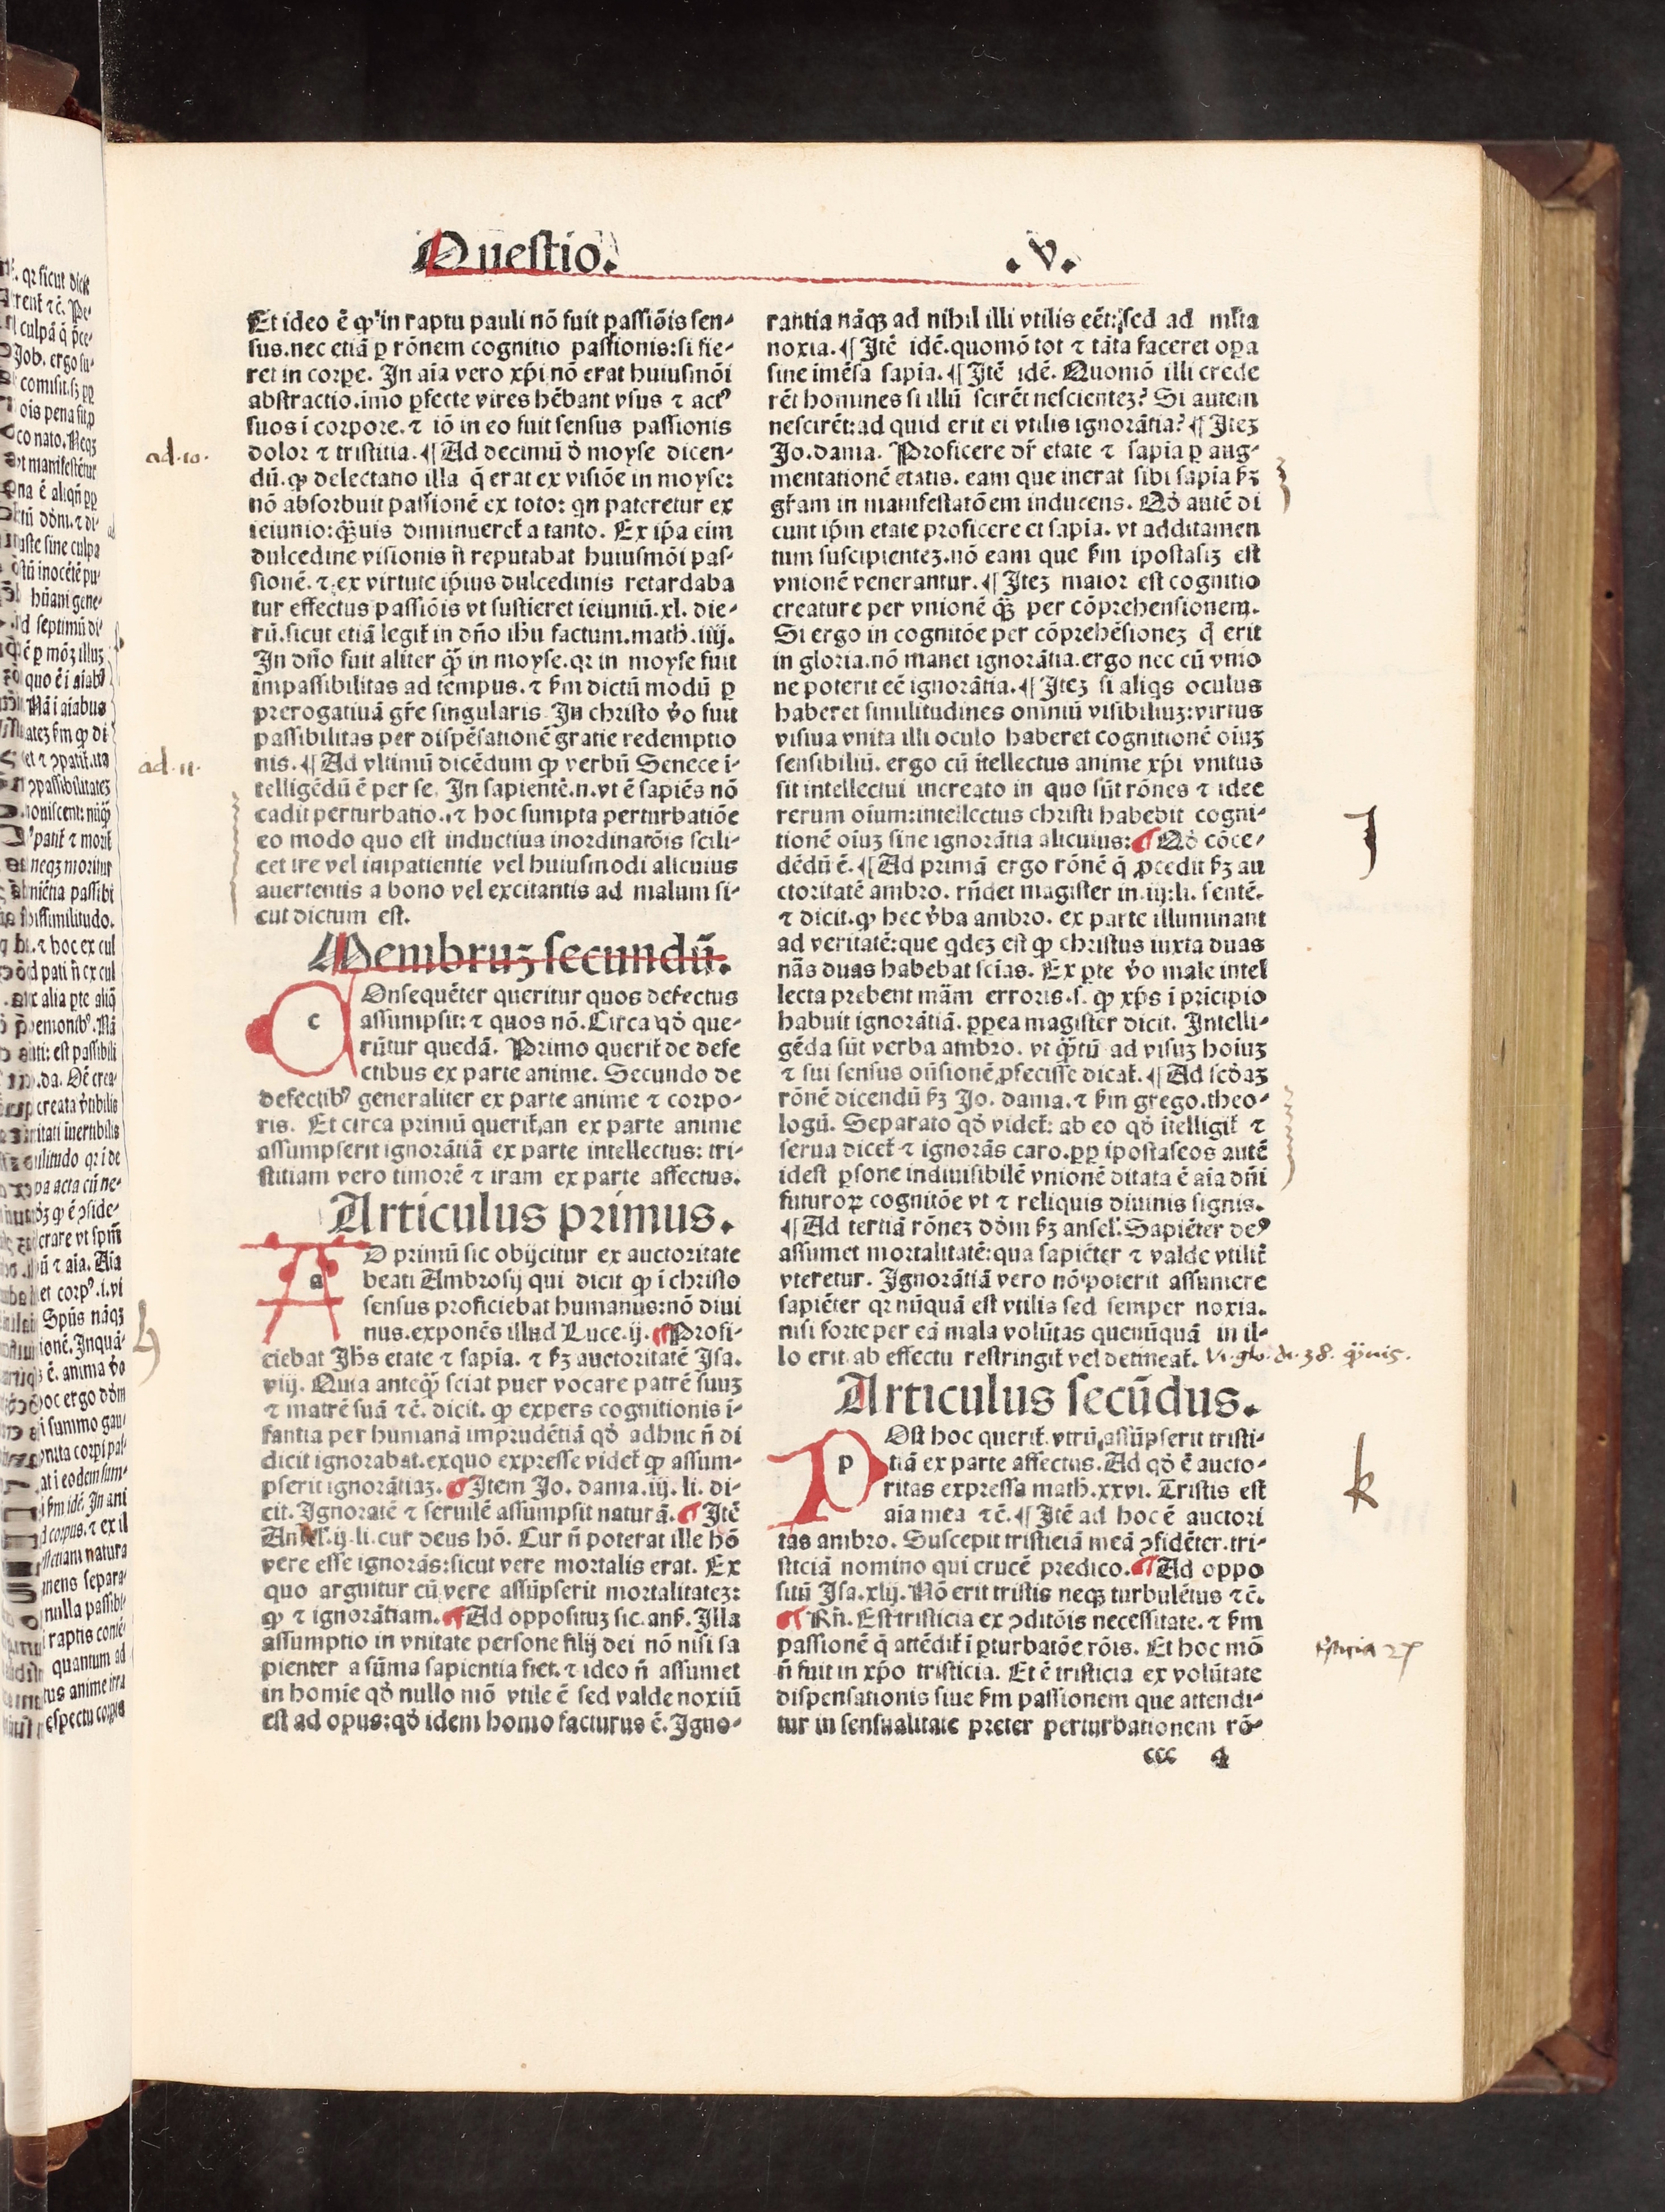 Questio. .V.
Et ideo ē ꝙ in raptu pauli nō fuit passiōis sen-
sus.nec etiā ꝑ rōnem cognitio passionis:si fie-
ret in corꝑe. In aīa vero xp̄i nō erat huiusmōi
abstractio.imo ꝑfecte vires hēbant vsus ⁊ actꝰ
suos i corpore.⁊ iō in eo fuit sensus passionis
dolor ⁊ tristitia.¶Ad decimū ꝺ̓ moyse dicen-
dū.ꝙ delectatio illa q̄ erat ex visiōe in moyse:
nō absorbuit passionē ex toto: qn pateretur ex
ieiunio:qꝫuis diminueret᷑ a tanto. Ex ip̄a eim
dulcedine visionis n̄ reputabat huiusmōi pas-
sionē.⁊.ex virtute ip̄ius dulcedinis retardaba
tur effectus passiōis vt sustieret ieiuniū.xl. die-
rū.sicut etiā legit᷑ in dn̄o ih̄u factum.math̄.iiij.
In dn̄o fuit aliter qꝫ̄ in moyse.qꝛ in moyse fuit
impassibilitas ad tempus.⁊ ẜm dictū modū ꝑ
prerogatiuā gr̄e singularis In christo ꝟo fuit
passibilitas per dispēsationē gratie redemptio
nis.¶Ad vltimū dicēdum ꝙ verbū Senece i-
telligēdū ē per se. In sapientē.n.vt ē sapiēs nō
cadit perturbatio.⁊ hoc sumpta perturbatiōe
eo modo quo est inductiua inordinatōis scili-
cet ire vel impatientie vel huiusmodi alicuius
auertentis a bono vel excitantis ad malum si-
cut dictum est.
Membruꝫ secundū.
c Onsequēter queritur quos defectus
assumpsit:⁊ quos nō.Circa qꝺ̓ que-
rūtur quedā. Primo querit᷑ de defe
ctibus ex parte anime. Secundo de
defectibꝰ generaliter ex parte anime ⁊ corpo-
ris. Et circa primū querit᷑,an ex parte anime
assumpserit ignorātiā ex parte intellectus: tri-
stitiam vero timorē ⁊ iram ex parte affectus.
Articulus primus.
a D primū sic obijcitur ex auctoritate
beati Ambrosij qui dicit ꝙ i christo
sensus proficiebat humanus:nō diui
nus.exponēs illud Luce.ij.¶Profi-
ciebat Jh̄s etate ⁊ sapia. ⁊ ẜꝫ auctoritatē Jsa.
viij. Quia anteqꝫ̄ sciat puer vocare patrē suuꝫ
⁊ matrē suā ⁊c̄. dicit. ꝙ expers cognitionis i-
fantia per humanā imprudētiā qꝺ̓ adhuc n̄ di
dicit ignorabat.exquo expresse videt᷑ ꝙ assum-
pserit ignorātiaꝫ.¶Item Jo. dama.iij. li. di-
cit. Ignorātē ⁊ seruilē assumpsit naturā.¶Itē
Ansel.ij.li.cur deus hō. Cur n̄ poterat ille hō
vere esse ignorās:sicut vere mortalis erat. Ex
quo arguitur cū vere assūpserit mortalitateꝫ:
ꝙ ⁊ ignorātiam.¶Ad opposituꝫ sic.anẜ. Illa
assumptio in vnitate persone filij dei nō nisi sa
pienter a sūma sapientia fiet.⁊ ideo n̄ assumet
in homīe qꝺ̓ nullo mō vtile ē sed valde noxiū
est ad opus:qꝺ̓ idem homo facturus ē. Igno-
rantia nāqꝫ ad nihil illi vtilis eēt:sed ad ml̓ta
noxia.¶Itē idē.quomō tot ⁊ tāta faceret oꝑa
sine imēsa sapia.¶Itē idē. Quomō illi crede
rēt homines si illū scirēt nescienteꝫ? Si autem
nescirēt:ad quid erit ei vtilis ignorātia?¶Iteꝫ
Jo.dama. Proficere dr̄ etate ⁊ sapia ꝑ aug-
mentationē etatis. eam que inerat sibi sapia ẜꝫ
gr̄am in manifestatōem inducens. Qꝺ̓ autē di
cunt ip̄m etate proficere et sapia. vt additamen
tum suscipienteꝫ.nō eam que ẜm ipostasiꝫ est
vnionē venerantur.¶Iteꝫ maior est cognitio
creature per vnionē qꝫ̄ per cōprehensionem.
Si ergo in cognitōe per cōprehēsioneꝫ q̄ erit
in gloria.nō manet ignorātia.ergo nec cū vnio
ne poterit eē ignorātia.¶Iteꝫ si aliqs oculus
haberet similitudines omniū visibiliuꝫ:virtus
visiua vnita illi oculo haberet cognitionē oiuꝫ
sensibiliū. ergo cū ītellectus anime xp̄i vnitus
sit intellectui increato in quo sūt rōnes ⁊ idee
rerum oium:intellectus christi habebit cogni-
tionē oiuꝫ sine ignorātia alicuius:¶Qꝺ̓ cōce-
dēdū ē.¶Ad primā ergo rōnē q̄ ꝓcedit ẜꝫ au
ctoritatē ambro. rn̄det magister in.iij.li. sentē.
⁊ dicit.ꝙ hec ꝟba ambro. ex parte illuminant
ad veritatē:que qdeꝫ est ꝙ christus iuxta duas
nās duas habebat scias. Ex ꝑte ꝟo male intel
lecta prebent mām erroris.s. ꝙ xp̄s i pricipio
habuit ignorātiā. ꝓpea magister dicit. Intelli-
gēda sūt verba ambro. vt qꝫ̄tū ad visuꝫ hoiuꝫ
⁊ sui sensus oūsionē,ꝓfecisse dicat᷑.¶Ad scꝺ̓aꝫ
rōnē dicendū ẜꝫ Jo. dama.⁊ ẜm grego.theo-
logū. Separato qꝺ̓ videt᷑: ab eo qꝺ̓ ītelligit᷑ ⁊
serua dicet᷑ ⁊ ignorās caro.ꝓp ipostaseos autē
idest ꝑsone indiuisibilē vnionē ditata ē aīa dn̄i
futuroꝝ cognitōe vt ⁊ reliquis diuinis signis.
¶Ad tertiā rōneꝫ dōm ẜꝫ ansel̓. Sapiēter deꝰ
assumet mortalitatē:qua sapiēter ⁊ valde vtilit᷑
vteretur. Ignorātiā vero nō poterit assumere
sapiēter qꝛ nūquā est vtilis sed semper noxia.
nisi forte per eā mala volūtas quenūquā in il-
lo erit ab effectu restringit᷑ vel detineat᷑.
Articulus secūdus.
p Ost hoc querit᷑.vtrū,assūpserit tristi-
tiā ex parte affectus. Ad qꝺ̓ ē aucto-
ritas expressa math̄.xxvi. Tristis est
aīa mea ⁊c̄.¶Itē ad hoc ē auctori
tas ambro. Suscepit tristiciā meā ꝯfidēter.tri-
sticiā nomino qui crucē predico.¶Ad oppo
sitū Jsa.xlij. Nō erit tristis neqꝫ turbulētus ⁊c̄.
¶Rn̄. Est tristicia ex ꝯditōis necessitate.⁊ ẜm
passionē q̄ attēdit᷑ i ꝑturbatōe rōis. Et hoc mō
n̄ fuit in xp̄o tristicia. Et ē tristicia ex volūtate
dispensationis siue ẜm passionem que attendi-
tur in sensualitate preter perturbationem rō-
ccc 4
ad.10.
ad.11.
k